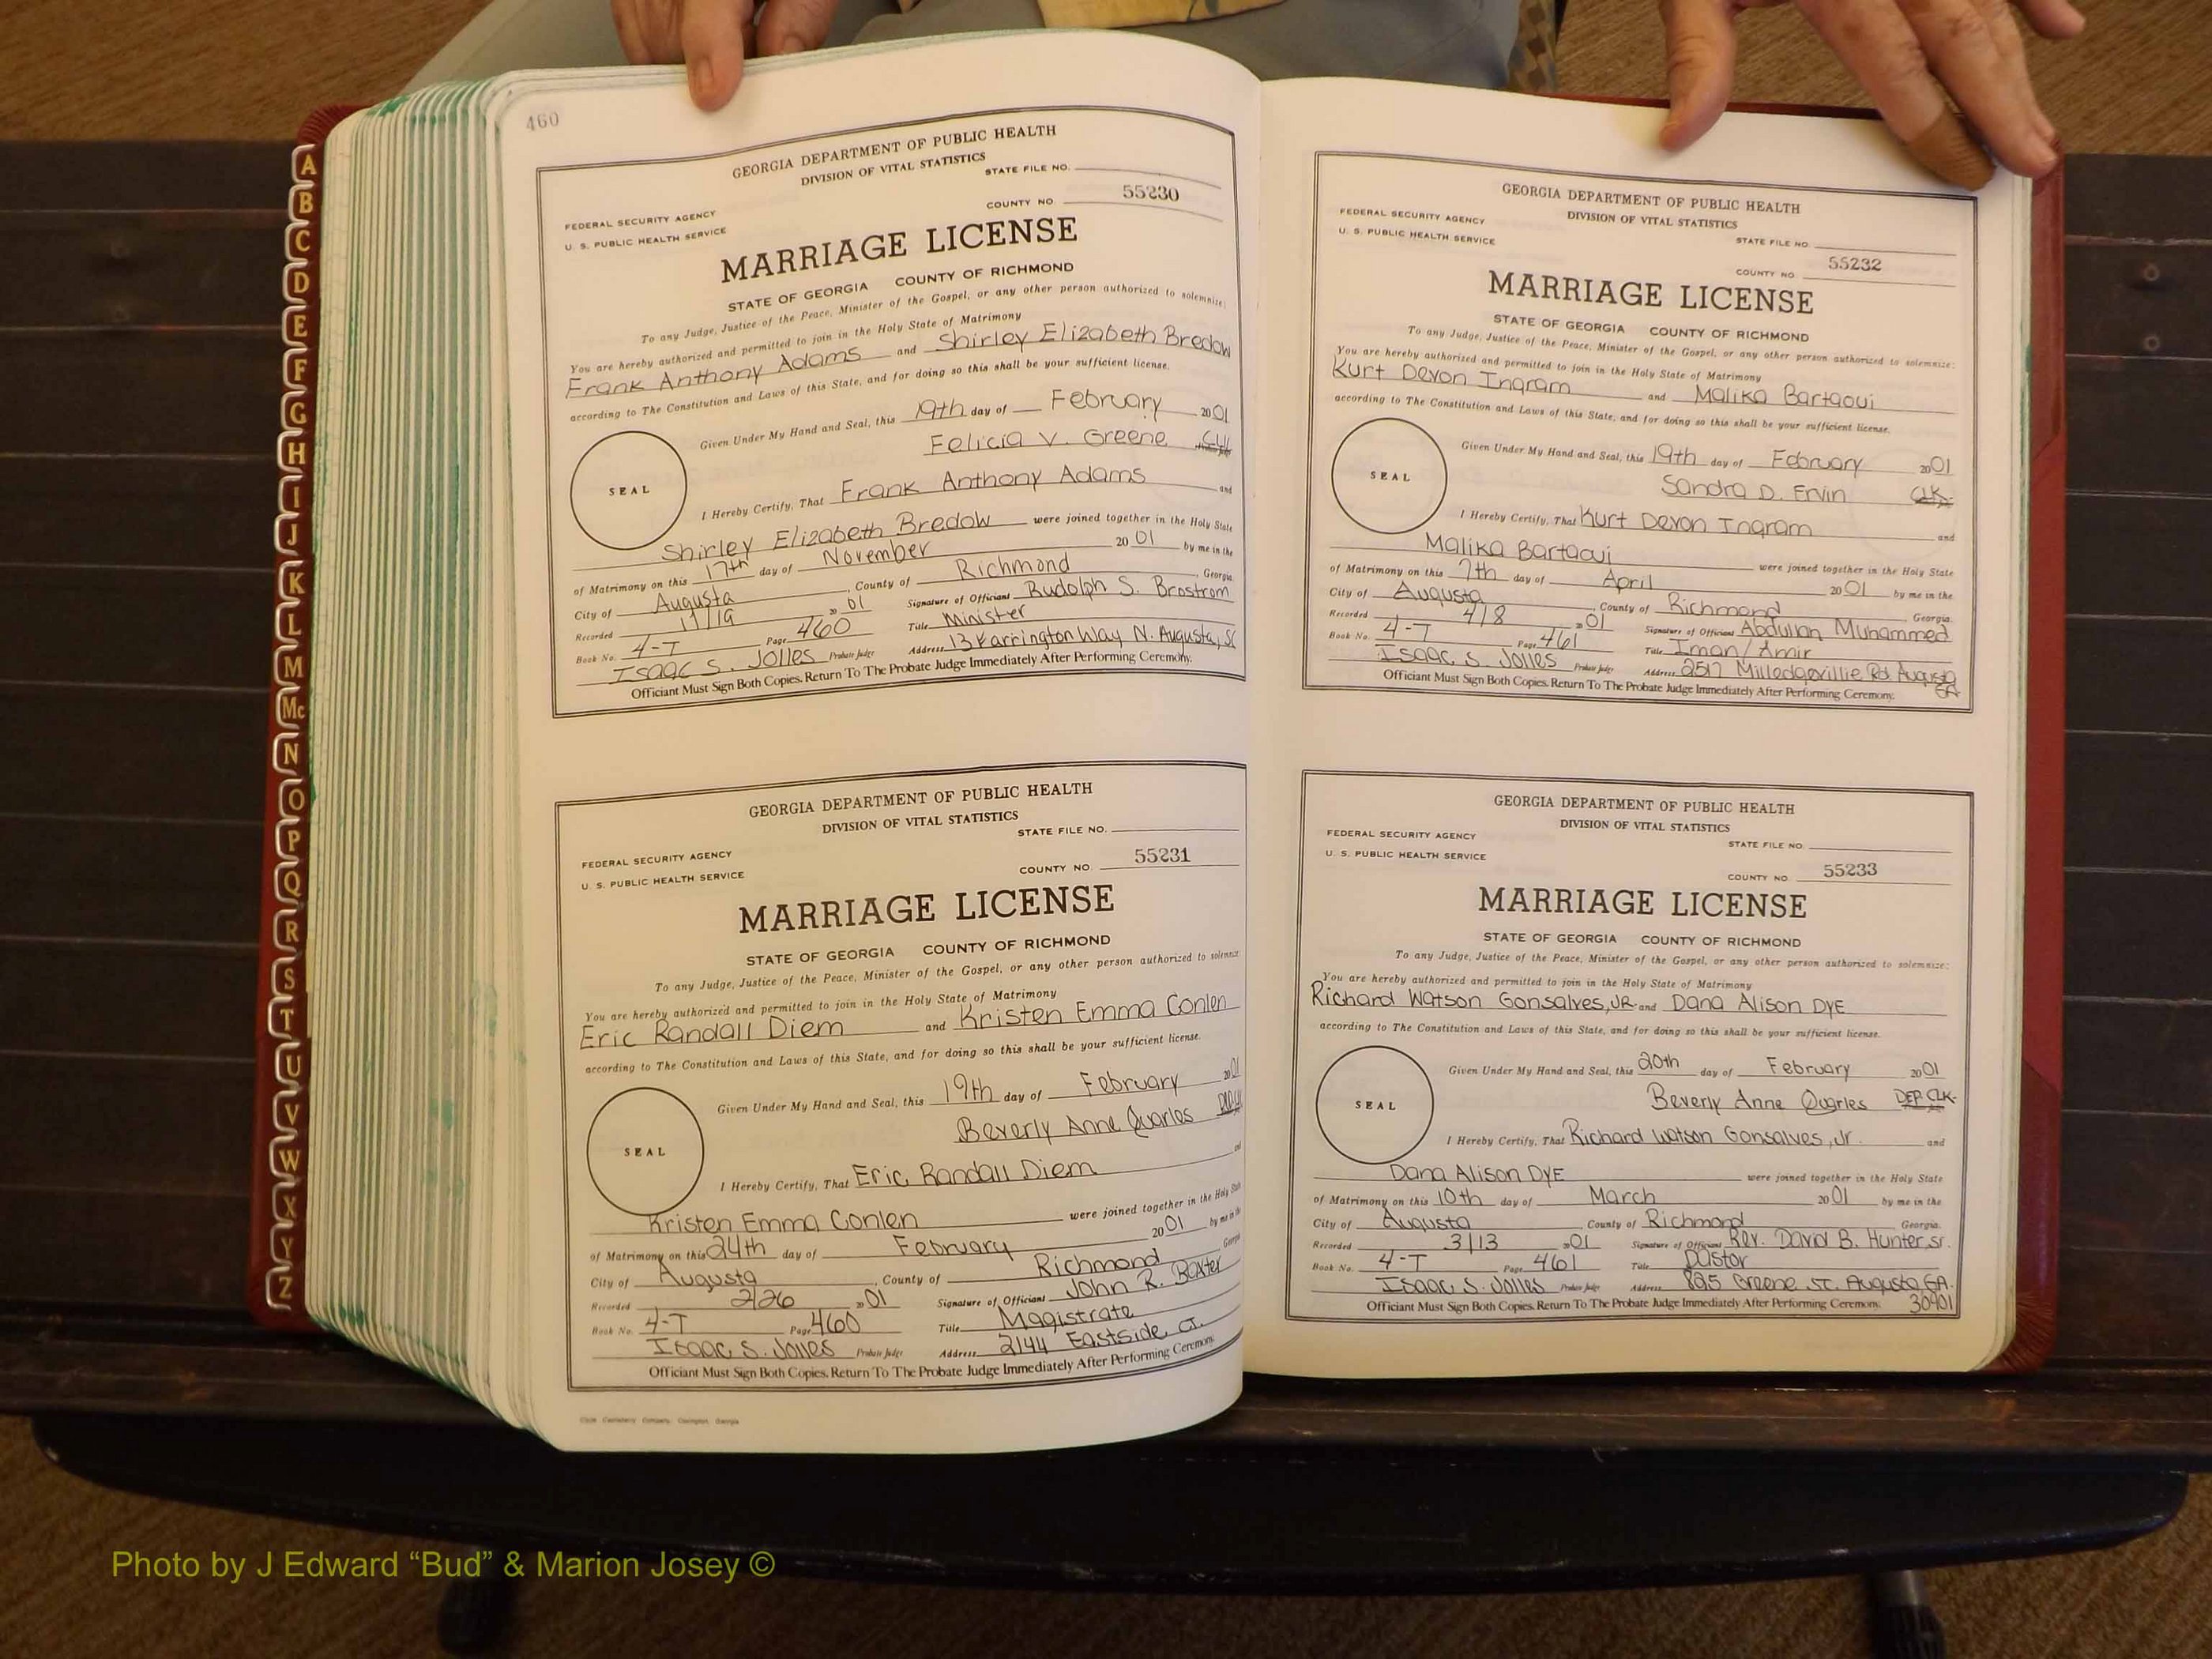 A
B
C
D
E
F
G
H
I
J
K
L
M
Mc
N
O
P
Q
R
S
T
U
V
W
X
Y
Z
460
GEORGIA DEPARTMENT OF PUBLIC HEALTH
DIVISION OF VITAL STATISTICS
STATE FILE NO.
FEDERAL SECURITY AGENCY
COUNTY NO 55230
U. S. PUBLIC HEALTH SERVICE
MARRIAGE LICENSE
STATE OF GEORGIA COUNTY OF RICHMOND
To any Judge, Justice of the Peace, Minister of the Gospel, or any other person authorized to solemnize:
You are hereby authorized and permitted to join in the Holy State of Matrimony
Frank Anthony Adams and Shirley Elizabeth Bredow
according to The Constitution and Laws of this State, and for doing so this shall be your sufficient license.
Given Under My Hand and Seal, this 19th day of February 2001
Felicia V. Greene
SEAL
I Hereby Certify, That Frank Anthony Adams and
Shirley Elizabeth Bredow were joined together in the Holy State
of Matrimony on this 17th day of November 2001 by me in the
City of Augusta, County of Richmond, Georgia
Recorded 11/19 2001 Signature of Officiant Rudolph S. Brostrom
Book No. 4-T Page 460 Title Minister
Isaac S. Jolles Probate Judge Address 13 Karrington Way N. Augusta, SC
Officiant Must Sign Both Copies. Return To The Probate Judge Immediately After Performing Ceremony.
GEORGIA DEPARTMENT OF PUBLIC HEALTH
DIVISION OF VITAL STATISTICS
STATE FILE NO.
FEDERAL SECURITY AGENCY
COUNTY NO 55231
U. S. PUBLIC HEALTH SERVICE
MARRIAGE LICENSE
STATE OF GEORGIA COUNTY OF RICHMOND
To any Judge, Justice of the Peace, Minister of the Gospel, or any other person authorized to solemnize
You are hereby authorized and permitted to join in the Holy State of Matrimony
Eric Randall Diem and Kristen Emma Conlen
according to The Constitution and Laws of this State, and for doing so this shall be your sufficient license.
Given Under My Hand and Seal, this 19th day of February 2001
Beverly Anne Quarles
SEAL
I Hereby Certify, That Eric Randall Diem and
Kristen Emma Conlen were joined together in the Holy State
of Matrimony on this 24th day of February 2001 by me in the
City of Augusta, County of Richmond Georgia
Recorded 2/26 2001 Signature of Officiant John R. Baxter
Book No. 4-T Page 460 Title Magistrate
Isaac S. Jolles Probate Judge Address 2144 Eastside Ct.
Officiant Must Sign Both Copies. Return To The Probate Judge Immediately After Performing Ceremony.
GEORGIA DEPARTMENT OF PUBLIC HEALTH
DIVISION OF VITAL STATISTICS
FEDERAL SECURITY AGENCY
STATE FILE NO
U. S. PUBLIC HEALTH SERVICE
COUNTY NO 55232
MARRIAGE LICENSE
STATE OF GEORGIA COUNTY OF RICHMOND
To any Judge, Justice of the Peace, Minister of the Gospel, or any other person authorized to solemnize:
You are hereby authorized and permitted to join in the Holy State of Matrimony
Kurt Devon Ingram and Malika Bartaoui
according to The Constitution and Laws of this State, and for doing so this shall be your sufficient license.
Given Under My Hand and Seal, this 19th day of February 2001
Sandra D. Ervin CLK.
SEAL
I Hereby Certify, That Kurt Devon Ingram and
Malika Bartaoui were joined together in the Holy State
of Matrimony on this 7th day of April 2001 by me in the
City of Augusta, County of Richmond Georgia.
Recorded 4/8 2001 Signature of Officiant Abdullah Muhammed
Book No. 4-T Page 461 Title Iman/Amir
Isaac S. Jolles Probate Judge Address 2517 Milledgeville Rd. Augusta GA
Officiant Must Sign Both Copies. Return To The Probate Judge Immediately After Performing Ceremony.
GEORGIA DEPARTMENT OF PUBLIC HEALTH
DIVISION OF VITAL STATISTICS
FEDERAL SECURITY AGENCY
STATE FILE NO.
U. S. PUBLIC HEALTH SERVICE
COUNTY NO 55233
MARRIAGE LICENSE
STATE OF GEORGIA COUNTY OF RICHMOND
To any Judge, Justice of the Peace, Minister of the Gospel, or any other person authorized to solemnize:
You are hereby authorized and permitted to join in the Holy State of Matrimony
Richard Watson Gonsalves, JR. and Dana Alison DYE
according to The Constitution and Laws of this State, and for doing so this shall be your sufficient license.
Given Under My Hand and Seal, this 20th day of February 2001
Beverly Anne Quarles DEP. CLK.
SEAL
I Hereby Certify, That Richard Watson Gonsalves, Jr. and
Dana Alison DYE were joined together in the Holy State
of Matrimony on this 10th day of March 2001 by me in the
City of Augusta, County of Richmond Georgia.
Recorded 3/13 2001 Signature of Officiant Rev. David B. Hunter, Sr.
Book No. 4-T Page 461 Title Pastor
Isaac S. Jolles Probate Judge Address 825 Greene St. Augusta GA.
Officiant Must Sign Both Copies. Return To The Probate Judge Immediately After Performing Ceremony. 30901
Photo by J Edward “Bud” & Marion Josey ©